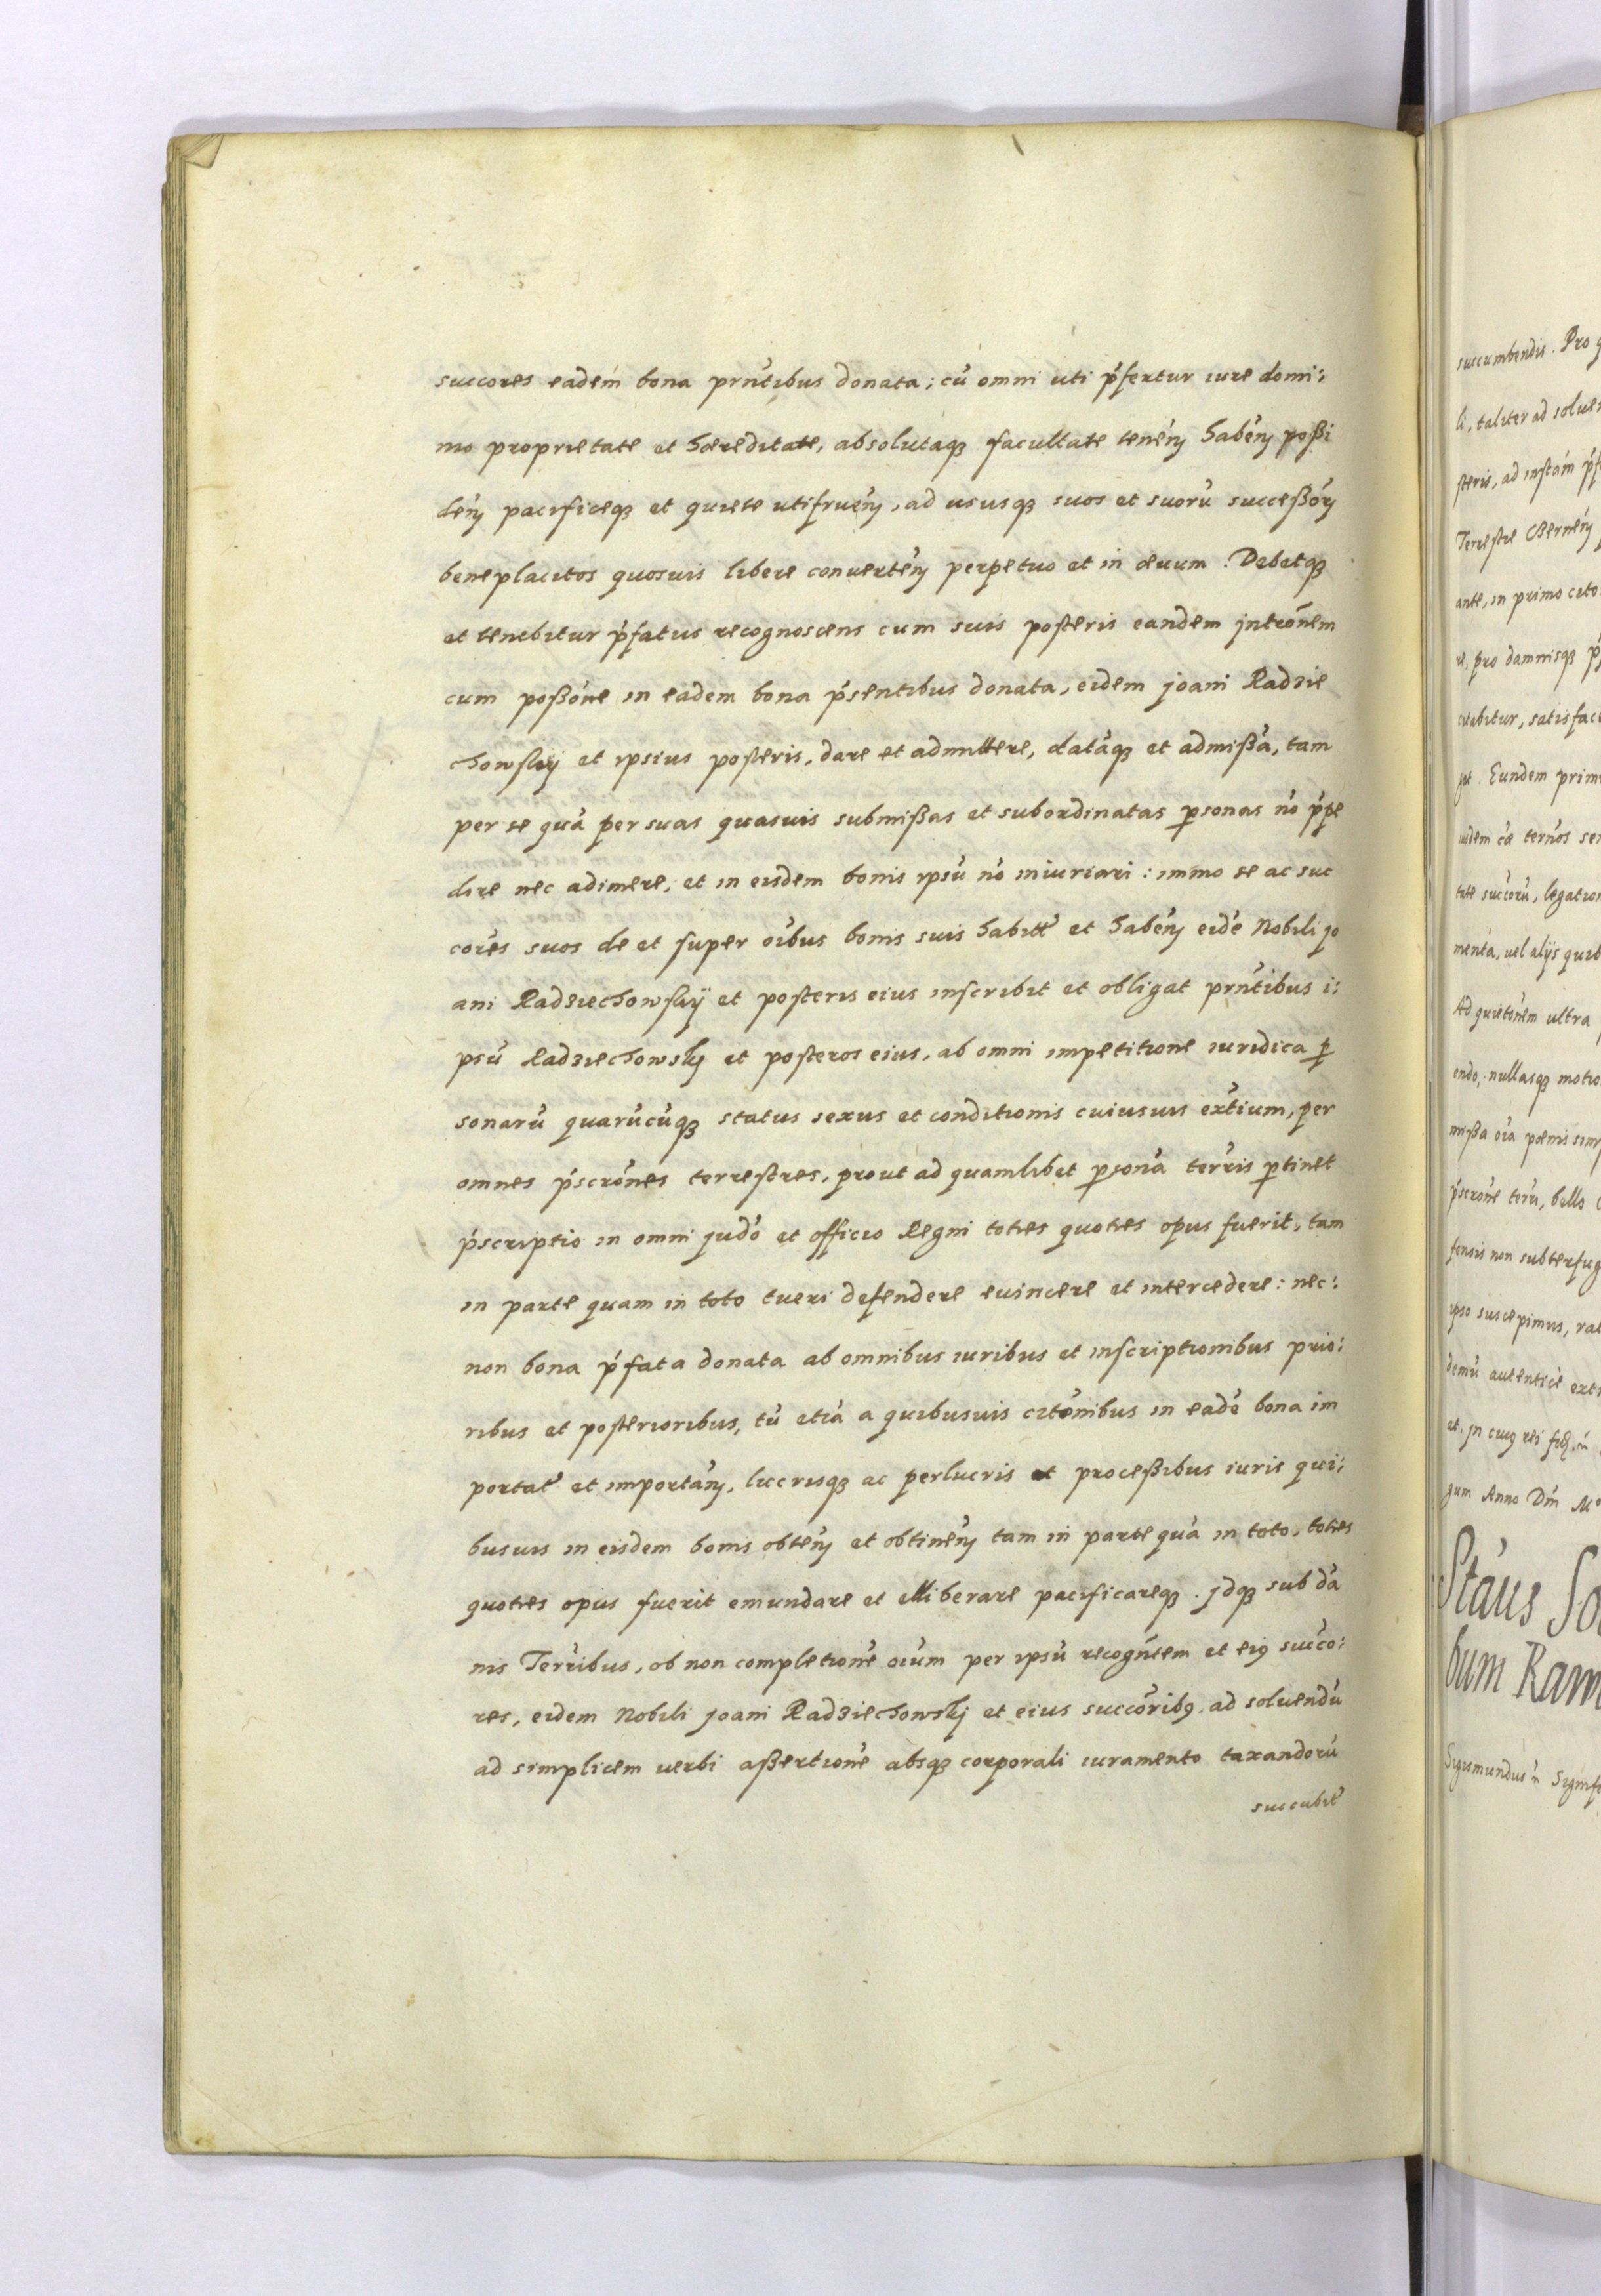 succores eadem bona prñtibus donata; cũ omni uti p̃fertur iure domi:
nio proprietate et hæreditate, absolutaq3 facultate teneñ habeñ possi
deñ pacificeq3 et quiete utifrueñ, ad ususq3 suos et suorũ successoꝝ
beneplacitos quosuis libere conuerteñ perpetuo et in æuum. Debetq3
et tenebitur p̃fatus recognoscens cum suis posteris eandem jntrõnem
cum possõne in eadem bona p̃sentibus donata, eidem joani Radzie
chowskij et ipsius posteris, dare et admittere, datãq3 et admissã, tam
per se quã per suas quasuis submissas et subordinatas ꝑsonas nõ p̃pe
dire nec adimere, et in eisdem bonis ipsũ nõ iniuriari: immo se ac suc
cores suos de et super oĩbus bonis suis habit̃ et habeñ eidẽ Nobili jo
ani Radziechowskij et posteris eius inscribit et obligat prñtibus i:
psũ Radziechowskj et posteros eius, ab omni impetitione iuridica ꝑ
sonarũ quarũcũq3 status sexus et conditionis cuiusuis ext̃ium, per
omnes p̃scrõnes terrestres, prout ad quamlibet ꝑsonã terr̃is ꝑtinet
p̃scriptio in omni judõ et officio Regni toties quoties opus fuerit, tam
in parte quam in toto tueri defendere euincere et intercedere: nec:
non bona p̃fata donata ab omnibus iuribus et inscriptionibus prio:
ribus et posterioribus, tũ etiã a quibusuis citõnibus in eadẽ bona im
portat̃ et importañ, lucrisq3 ac perlucris et processibus iuris qui:
busuis in eisdem bonis obteñ et obtineñ tam in parte quã in toto, toties
quoties opus fuerit emundare et elliberare pacificareq3. jdq3 sub dã
nis Terr̃ibus, ob non completionẽ oĩum per ipsũ recogñtem et eiꝰ succo:
res, eidem Nobili joani Radziechowskj et eius succõribꝰ, ad soluendũ
ad simplicem uerbi assertionẽ absq3 corporali iuramento taxandorũ
succubit̃
succumbendis. Pro
li, taliter ad
steris, ad
Terrestre
ante, in primo
pro damnisq3
satisfac
Eundem
legation
uel alijs
Ad quietõnem ultra
endo, nullasq3
bello
fensis non
ipso suscepimus,
demũ
gum Anno Dñi
Stãus
bum
Sigismundus